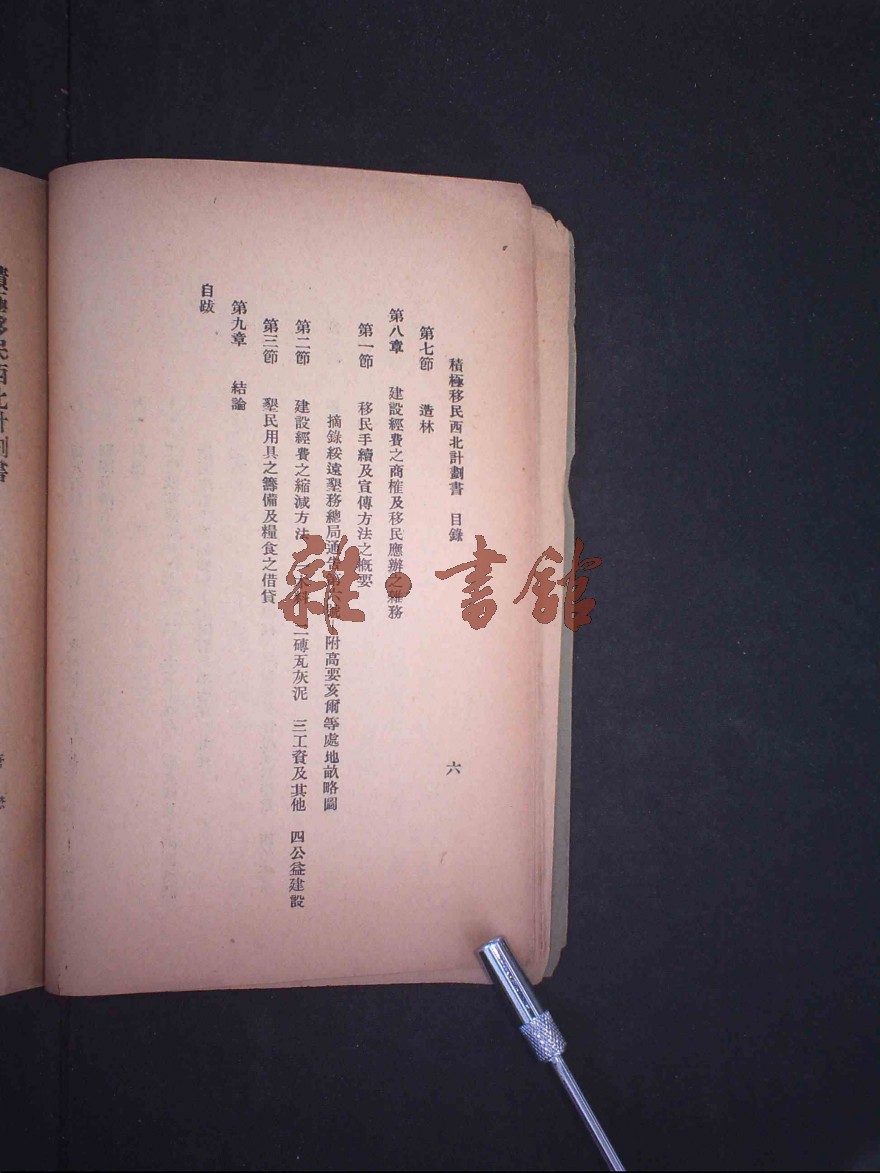 積極移民西北計劃書 目錄 六
第七節 造林
第八章 建設經費之商榷及移民應辦之雜務
第一節 移民手續及宣傳方法之概要
摘錄綏遠墾務總局通告 附高要亥爾等處地畝略圖
第二節 建設經費之縮減方法 二磚瓦灰泥 三工資及其他 四公益建設
第三節 墾民用具之籌備及糧食之借貸
第九章 結論
自跋
積極移民西北計劃書
雜·書館